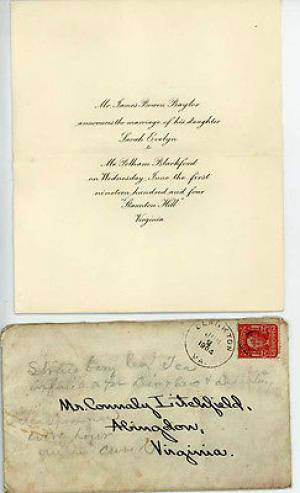 Mr. James Bowen Baylor
announces the marriage of his daughter
Sarah Evelyn
to
Mr. Pelham Blackford
on Wednesday, June the first
nineteen hundred and four
"Staunton Hill"
Virginia
CLARKTON
1904
VA.
Strawberry Leaf Tea
for
hour
cured
Mr. Connaly Litchfield,
Abingdon,
Virginia.